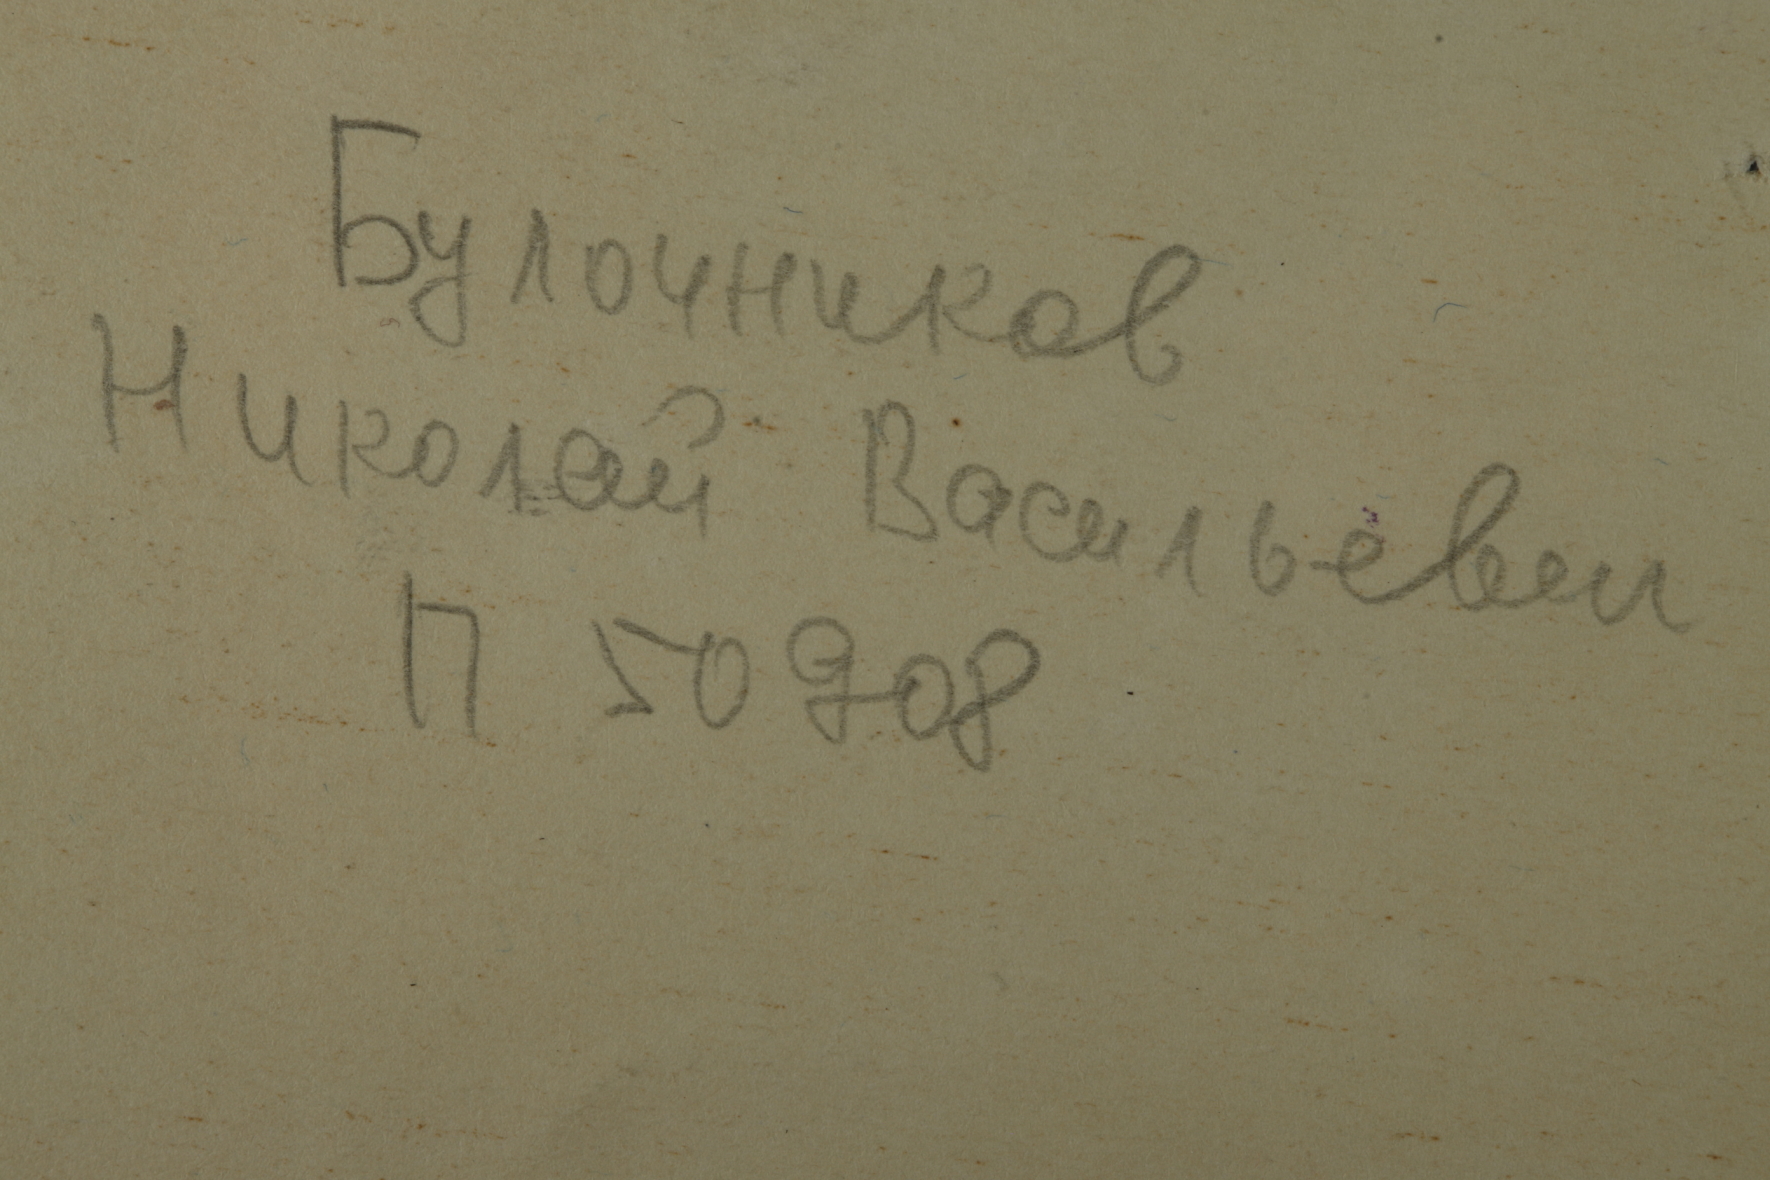 Булочников
Николай Васильевич
П 50908